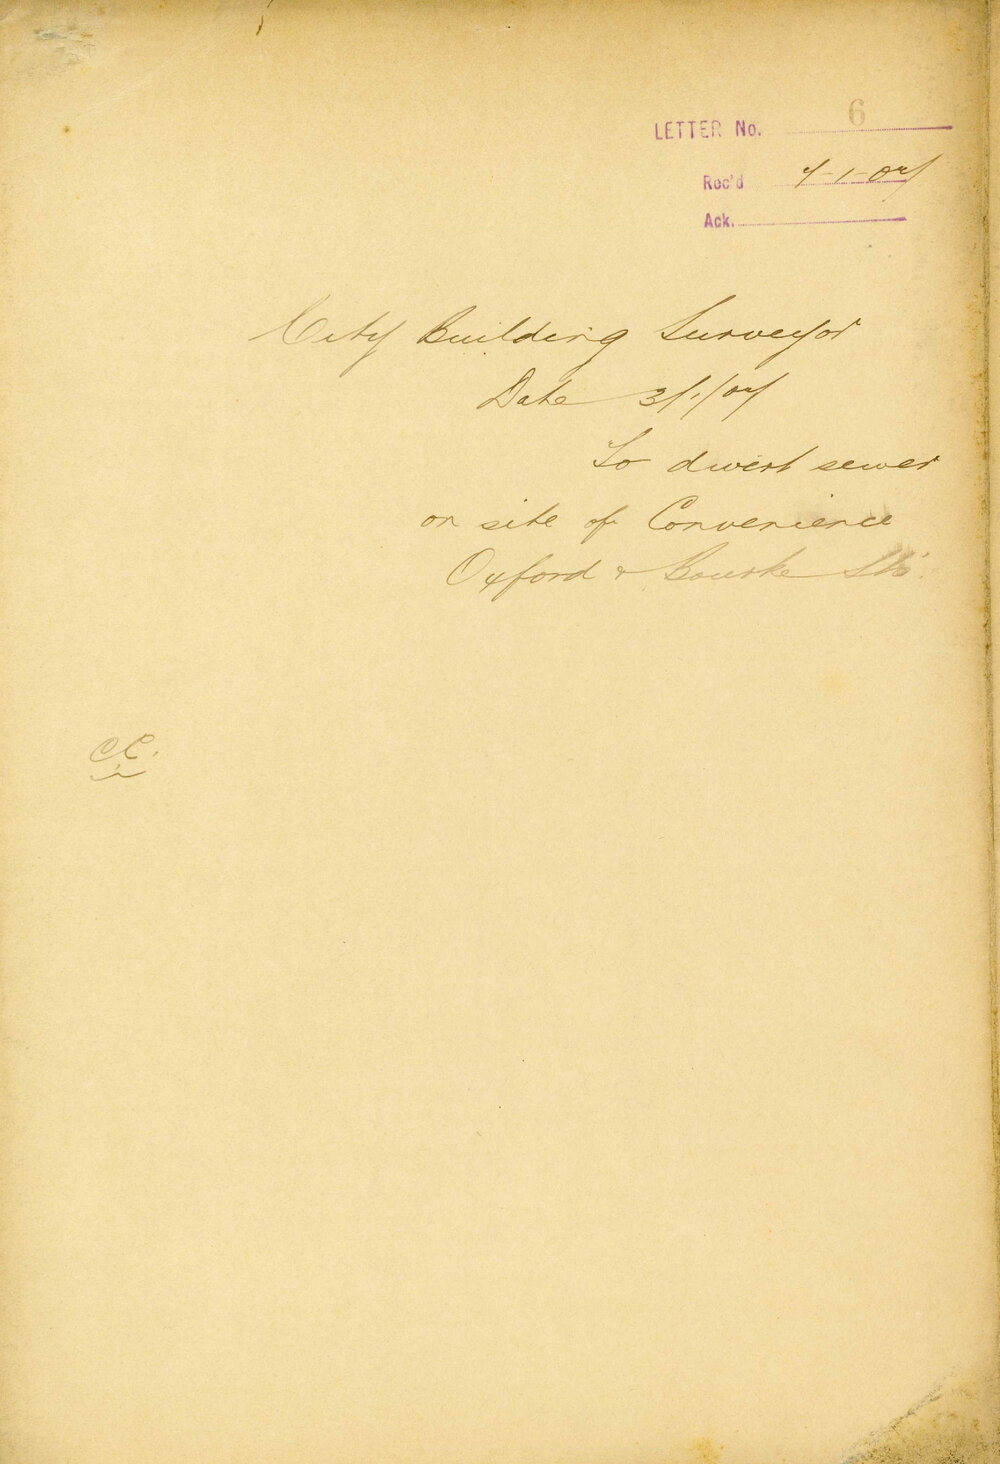 LETTER No. 6
Rec'd 7-1-07
Ack.
City Building Surveyor
Date 3/1/07
To divert sewer
on site of Convenience
Oxford & Bourke Sts.
CC.